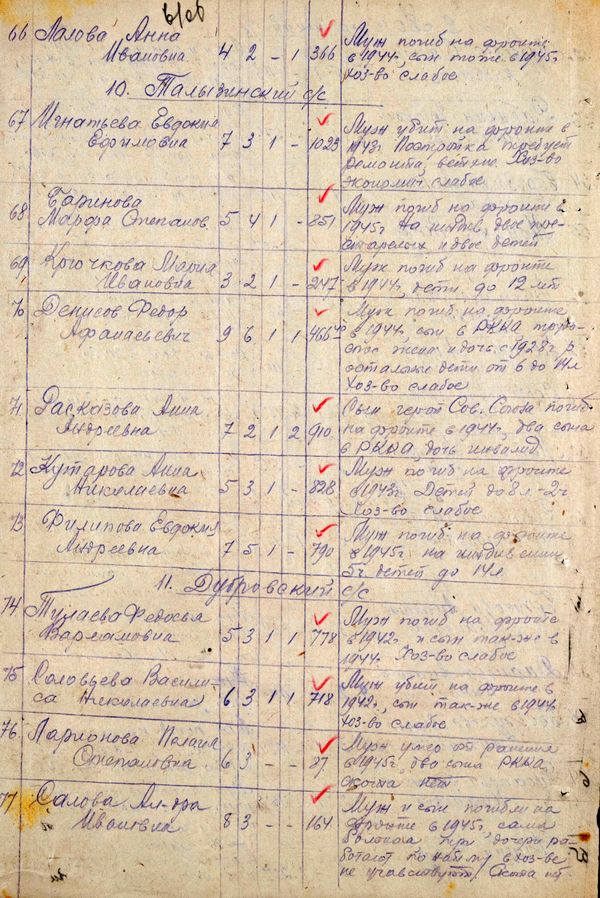 в/об
66 Лалова Анна
Ивановна 4 2 - 1 366 Муж погиб на фронте
в 1944, сын тоже в 1945г
Хоз-во слабое
10. Талызинский с/с
67 Игнатьева Евдокия
Ефимовна 7 3 1 - 1023 Муж убит на фронте в
1943г. Постройка требует
ремонта, ветхие. Хоз-во
экономич. слабое
68
Марфа Степанов 5 4 1 - 851 Муж погиб на фронте в
1945г на иждив. двое пре-
старелых и двое детей
69 Крючкова Мария
Ивановна 3 2 1 - 247 Муж погиб на фронте
в 1944, дети до 12 лет
70 Денисов Федор
Афанасьевич 9 6 1 1 466 Муж погиб на фронте
в 1944, сын в РККА
жена и дочь с 1928г р
остальные дети от 6 до 14л
Хоз-во слабое
71 Расказова Анна
Андреевна 7 2 1 2 910 Сын герой Сов. Союза погиб
на фронте в 1944, два сына
в РККА, дочь инвалид
72 Кутарова Анна
Николаевна 5 3 1 - 828 Муж погиб на фронте
в 1943г. Детей до 8 л - 2ч
Хоз-во слабое
73 Филипова Евдокия
Андреевна 7 5 1 - 790 Муж погиб на фронте
в 1945г на иждивении
5ч детей до 14л
11. Дубровский с/с
74 Тулаева Федосья
Варламовна 5 3 1 1 778 Муж погиб на фронте
в 1942г и сын так-же в
1944 Хоз-во слабое
75 Соловьева Васили-
са Николаевна 6 3 1 1 718 Муж убит на фронте в
1942, сын так-же в 1944
Хоз-во слабое
76 Ларионова Пелагия
Степановна 6 3 - - 87 Муж умер от ранения
в 1945г, два сына РККА
скота нет
77 Салова Ал-дра
Ивановна 8 3 - - 164 Муж и сын погибли на
фронте в 1945г, сама
больная три дочери ра-
ботают по найму в хоз-ве
не участвуют. Скота нет